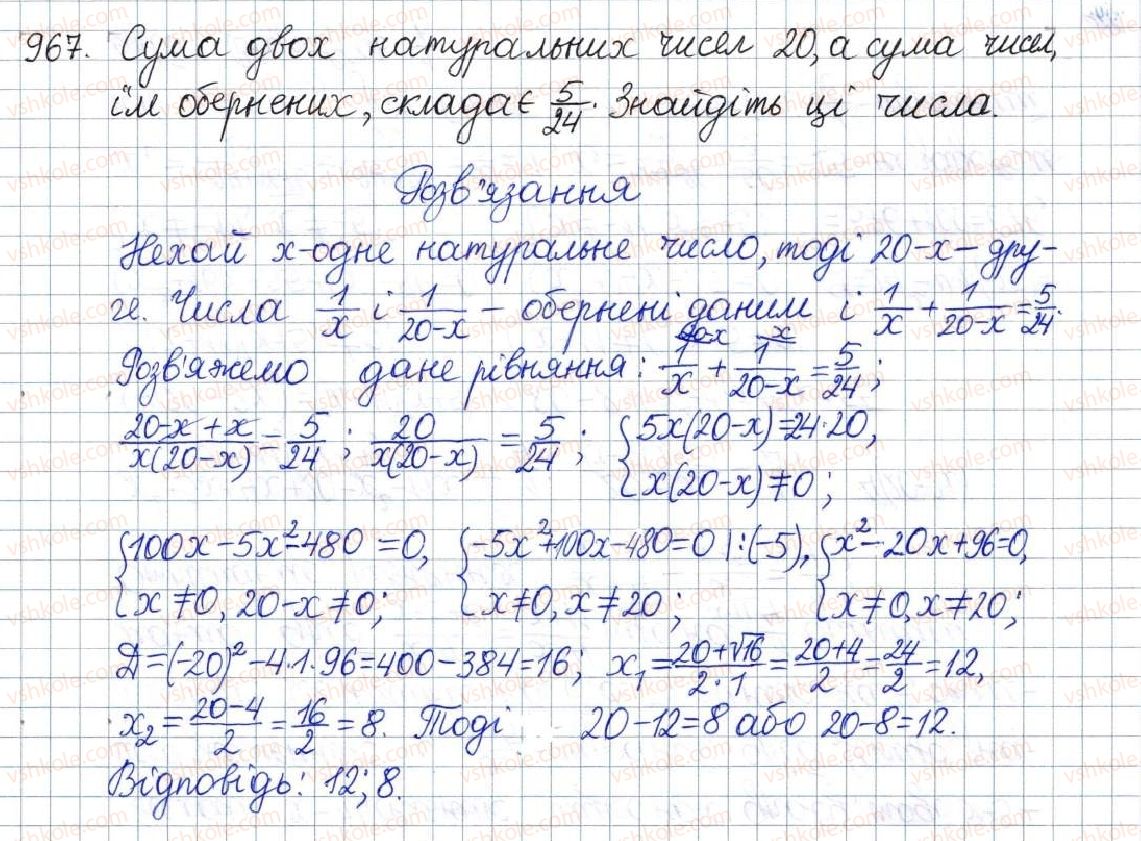 967. Сума двох натуральних чисел 20, а сума чисел,
їм обернених, складає 5/24. Знайдіть ці числа.
Розв'язання
Нехай x - одне натуральне число, тоді 20-x - дру-
ге. Числа 1/x і 1/(20-x) - обернені даним і 1/x + 1/(20-x) = 5/24.
Розв'яжемо дане рівняння: 1/x + 1/(20-x) = 5/24;
(20-x+x)/(x(20-x)) = 5/24; 20/(x(20-x)) = 5/24; { 5x(20-x)=24·20,
x(20-x)≠0;
{ 100x-5x²-480=0, { -5x²+100x-480=0 |:(-5), { x²-20x+96=0,
x≠0, 20-x≠0; x≠0, x≠20; x≠0, x≠20;
Д=(-20)²-4·1·96=400-384=16; x₁=(20+√16)/(2·1)=(20+4)/2=24/2=12,
x₂=(20-4)/2=16/2=8. Тоді 20-12=8 або 20-8=12.
Відповідь: 12; 8.